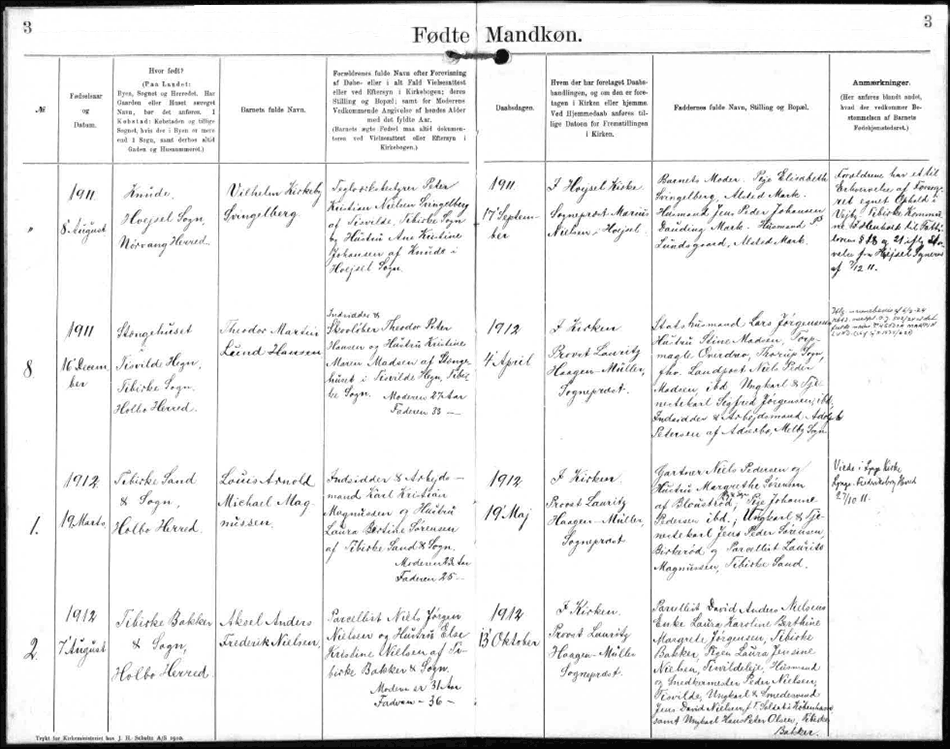 3
3
Fødte Mandkøn.
№
Fødselsaar
og
Datum.
Hvor født?
(Paa Landet:
Byen, Sognet og Herredet. Har
Gaarden eller Huset særeget
Navn, bør det anføres. I
Købstad: Købstaden og tillige
Sognet, hvis der i Byen er mere
end 1 Sogn, samt derhos altid
Gaden og Husnummeret.)
Barnets fulde Navn.
Forældrenes fulde Navn efter Forevisning
af Daabs- eller i alt Fald Vielsesattest
eller ved Eftersyn i Kirkebogen; deres
Stilling og Bopæl; samt for Moderens
Vedkommende Angivelse af hendes Alder
med det fyldte Aar.
(Barnets ægte Fødsel maa altid dokumen-
teres ved Vielsesattest eller Eftersyn i
Kirkebogen.)
Daabsdagen.
Hvem der har foretaget Daabs-
handlingen, og om den er fore-
tagen i Kirken eller hjemme.
Ved Hjemmedaab anføres til-
lige Datoen for Fremstillingen
i Kirken.
Faddernes fulde Navn, Stilling og Bopæl.
Anmærkninger.
(Her anføres blandt andet,
hvad der vedkommer Be-
stemmelsen af Barnets
Fødehjemstedsret.)
"
1911
8 August
Knude,
Hvejsel Sogn,
Nørvang Herred.
Vilhelm Kirkeby
Svingelberg
Teglværksbestyrer Peter
Kristian Nielsen Svingelberg
af Tisvilde, Tibirke Sogn
og Hustru Ane Kristine
Johansen af Knude i
Hvejsel Sogn.
1911
17 Septem-
ber
I Hvejsel Kirke.
Sognepræst Marius
Nielsen i Hvejsel.
Barnets Moder. Pige Elisabeth
Svingelberg, Alsted Mark.
Husmand Jens Peder Johansen
Mark. Husmand
Lundsgaard, Alsted Mark.
Forældrene har et til
Erhvervelse af Forsørg
ret egnet Ophold i
Vejby Tibirke Kommu
ne i Henhold til Fatti
loven § 28 og 21 iflg. Skri
velse fra Hvejsel Sogneraa
af 7/12 11.
8.
1911
16 Decem-
ber
Stængehuset
i
Tisvilde Hegn,
Tibirke Sogn,
Holbo Herred.
Theodor Martin
Lund Hansen
Indsidder &
Skovløber Theodor Peter
Hansen og Hustru Kristine
Maren Madsen af Stænge
huset i Tisvilde Hegn, Tibir-
ke Sogn.
Moderen 27 Aar
Faderen 33 —
1912
4 April
I Kirken.
Provst Lauritz
Haagen-Müller,
Sognepræst.
Statshusmand Lars Jørgensens
Hustru Stine Madsen, Torp-
magle Overdrev, Thorup Sogn,
fhv. Landpost Niels Peder
Madsen, ibd. Ungkarl & Tje-
nestekarl Sigfred Jørgensen, ibd.
Indsidder & Arbejdsmand Adolph
Petersen af Asserbo, Melby Sogn
1.
1912
19 Marts
Tibirke Sand
& Sogn,
Holbo Herred.
Louis Arnold
Michael Mag-
nussen.
Indsidder & Arbejds-
mand Karl Kristian
Magnussen og Hustru
Laura Bertine Sørensen
af Tibirke Sand & Sogn.
Moderen 23 Aar
Faderen 25 —
1912
19 Maj
I Kirken.
Provst Lauritz
Haagen-Müller,
Sognepræst
Gartner Niels Pedersen og
Hustru Margrethe Sørensen
af Blovstrød, Pige Johanne
Pedersen ibd., Ungkarl & Tje-
nestekarl Jens Peder Sørensen,
Birkerød og Parcellist Laurits
Magnussen, Tibirke Sand.
Viede i Lynge Kirke
Lynge-Frederiksborg Herred
27/10 11.
2.
1912
7 August
Tibirke Bakker
& Sogn,
Holbo Herred.
Aksel Anders
Frederik Nielsen,
Parcellist Niels Jørgen
Nielsen og Hustru Else
Kristine Nielsen af Ti-
birke Bakker & Sogn.
Moderen er 31 Aar
Faderen - 36 —
1912
13 Oktober
I Kirken.
Provst Lauritz
Haagen-Müller
Sognepræst.
Parcellist David Anders Nielsens
Enke Laura Karoline Berthine
Margrete Jørgensen, Tibirke
Bakker, Pigen Laura Jensine
Nielsen, Tisvildeleje, Husmand
og Snedkermester Peder Nielsen,
Tisvilde, Ungkarl & Smedesvend
Jens David Nielsen, København
samt Ungkarl Hans Peter Olsen, Tibirke
Bakker.
Trykt for Kirkeministeriet hos J. H. Schultz A/S 1910.